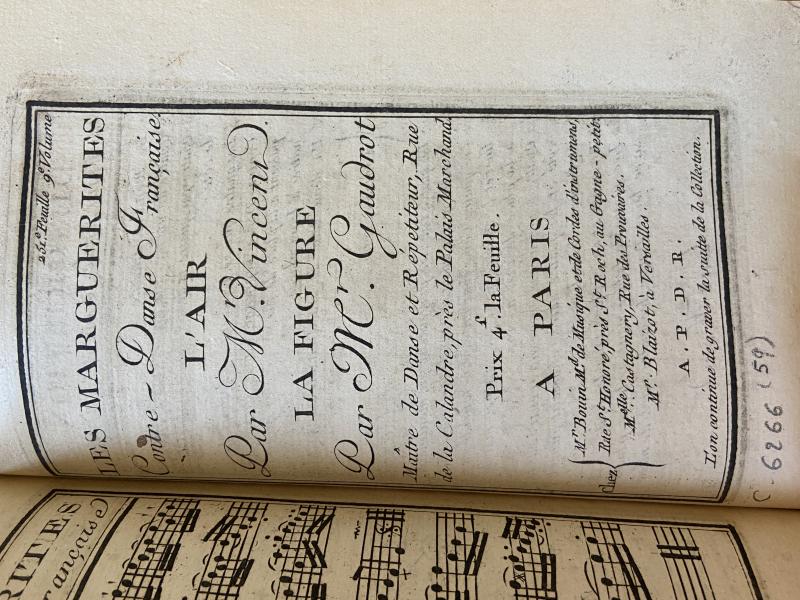 251.e Feuille 9.e Volume
LES MARGUERITES
Contre-Danse Française.
L'AIR
Par Mr. Vincent.
LA FIGURE
Par Mr. Gaudrot
Maître de Danse et Répetiteur, Rue
de la Calandre, près le Palais Marchand.
Prix 4 f. la Feuille.
A PARIS
Chez
Mr. Bouin, Md. de Musique et de Cordes d'instrumens,
Rue St. Honoré, près St. Roch, au Gagne-petit.
Melle. Castagnery, Rue des Prouvaires.
Mr. Blaizot, à Versailles.
A. P. D. R.
L'on continue de graver la suitte de la Collection.
C-6266 (59)
RITES
rançaise